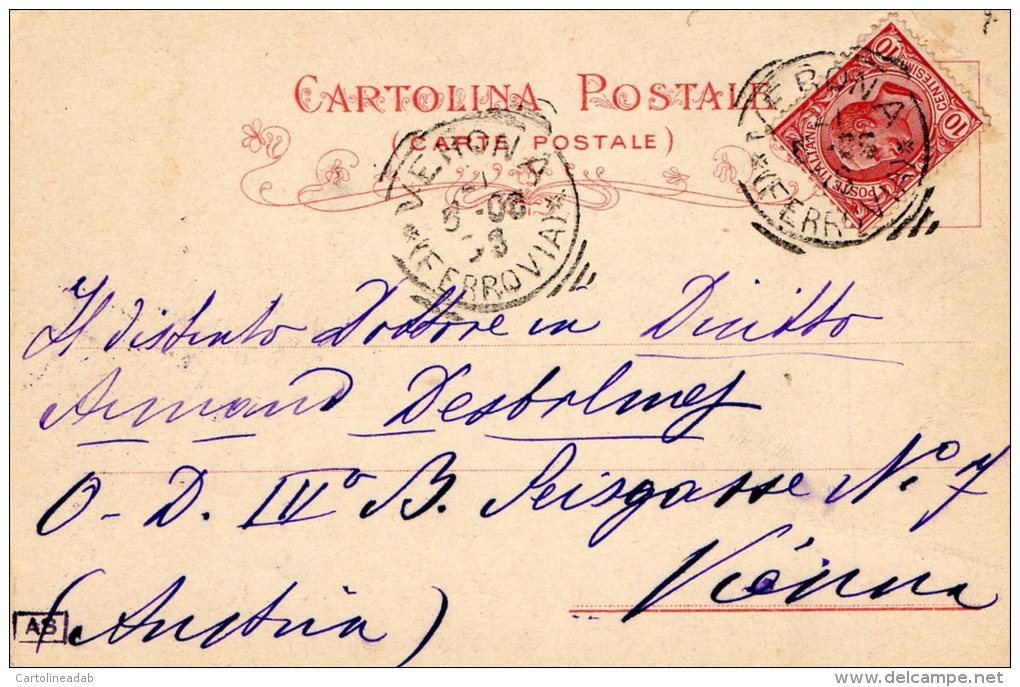 CARTOLINA POSTALE
(CARTE POSTALE)
10
CENTESIMI
10
POSTE ITALIANE
VERONA
(FERROVIA)
VERONA
08
(FERROVIA)
Il distinto Dottore in Diritto
Armand
O-D. IVº B. Seisgasse Nº. 7
Vienna
(Austria)
AS
Cartolineadab
delcampe.net